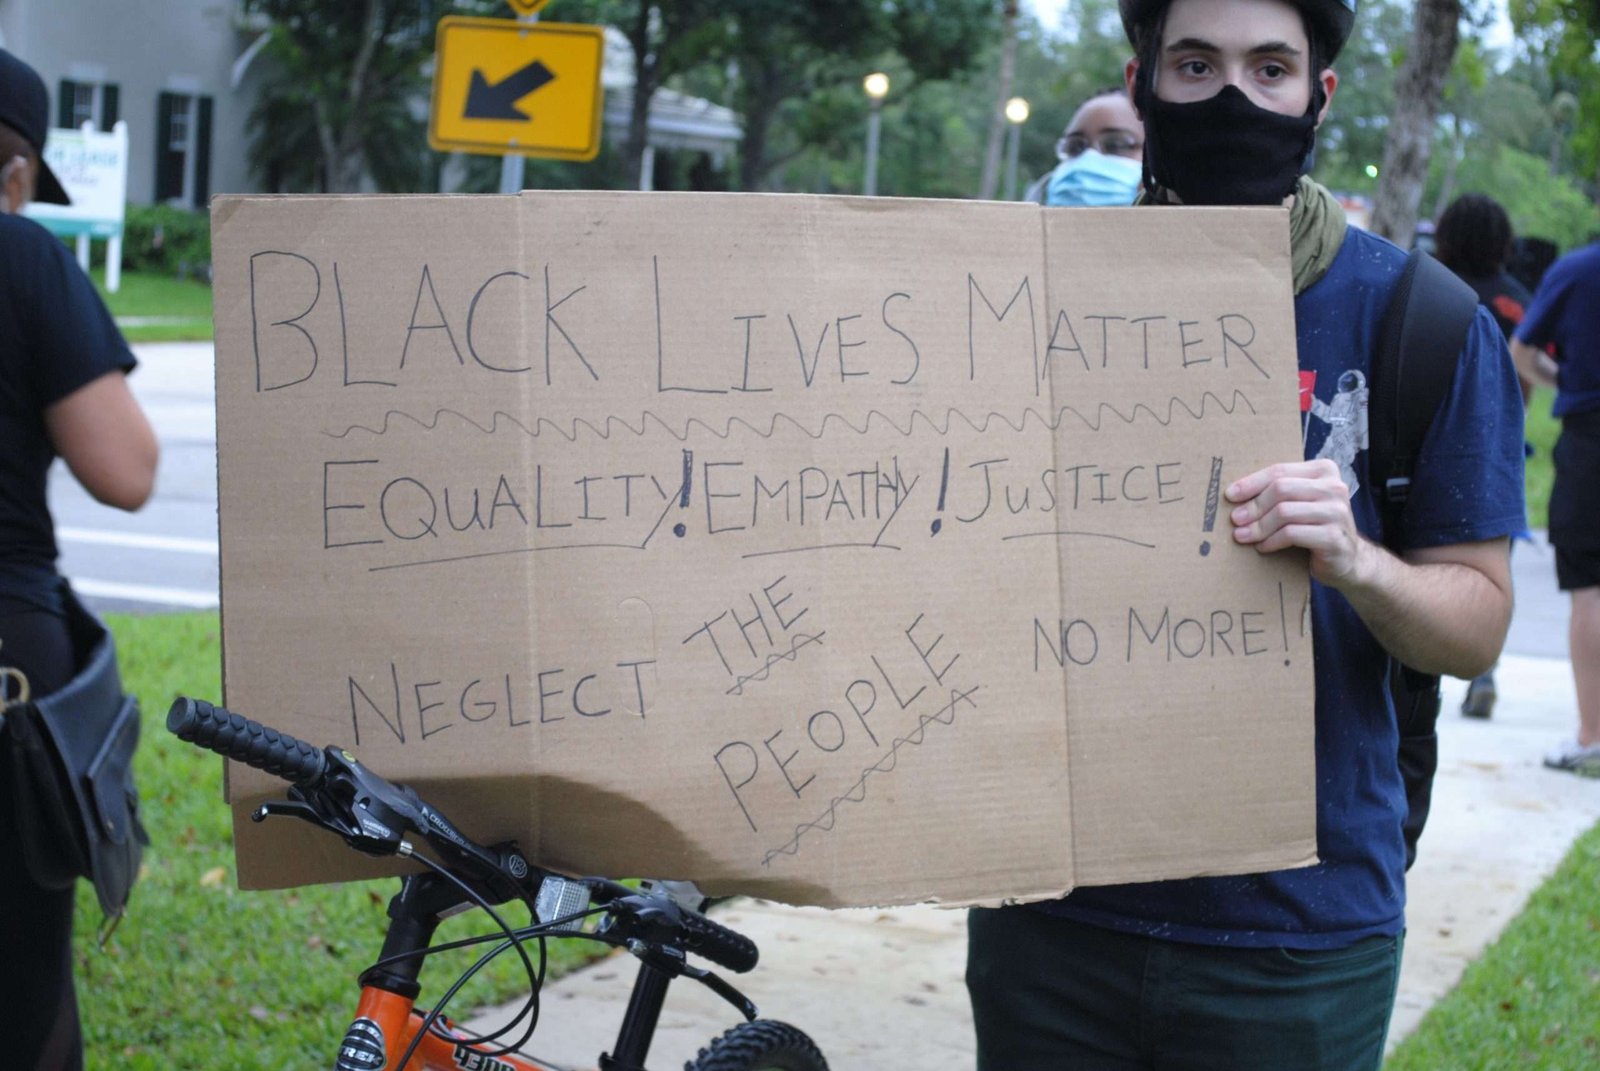 BLACK LIVES MATTER
EQUALITY! EMPATHY! JUSTICE!
NEGLECT THE PEOPLE NO MORE!
TREK
4300